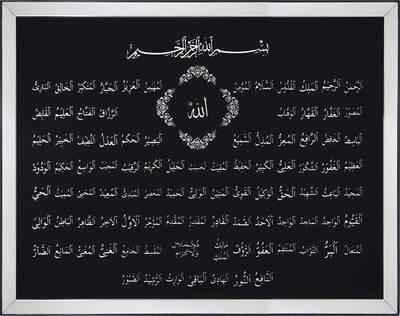 بِسْمِ اللهِ الرَّحْمٰنِ الرَّحِيمِ
الله
اَلرَّحْمٰنُ اَلرَّحِيمُ اَلْمَلِكُ اَلْقُدُّوسُ اَلسَّلَامُ اَلْمُؤْمِنُ اَلْمُهَيْمِنُ اَلْعَزِيزُ اَلْجَبَّارُ اَلْمُتَكَبِّرُ اَلْخَالِقُ اَلْبَارِئُ
اَلْمُصَوِّرُ اَلْغَفَّارُ اَلْقَهَّارُ اَلْوَهَّابُ اَلرَّزَّاقُ اَلْفَتَّاحُ اَلْعَلِيمُ اَلْقَابِضُ
اَلْبَاسِطُ اَلْخَافِضُ اَلرَّافِعُ اَلْمُعِزُّ اَلْمُذِلُّ اَلسَّمِيعُ اَلْبَصِيرُ اَلْحَكَمُ اَلْعَدْلُ اَللَّطِيفُ اَلْخَبِيرُ اَلْحَلِيمُ
اَلْعَظِيمُ اَلْغَفُورُ اَلشَّكُورُ اَلْعَلِيُّ اَلْكَبِيرُ اَلْحَفِيظُ اَلْمُقِيتُ اَلْحَسِيبُ اَلْجَلِيلُ اَلْكَرِيمُ اَلرَّقِيبُ اَلْمُجِيبُ اَلْوَاسِعُ اَلْحَكِيمُ اَلْوَدُودُ
اَلْمَجِيدُ اَلْبَاعِثُ اَلشَّهِيدُ اَلْحَقُّ اَلْوَكِيلُ اَلْقَوِيُّ اَلْمَتِينُ اَلْوَلِيُّ اَلْحَمِيدُ اَلْمُحْصِي اَلْمُبْدِئُ اَلْمُعِيدُ اَلْمُحْيِي اَلْمُمِيتُ اَلْحَيُّ
اَلْقَيُّومُ اَلْوَاجِدُ اَلْمَاجِدُ اَلْوَاحِدُ اَلْاَحَدُ اَلصَّمَدُ اَلْقَادِرُ اَلْمُقْتَدِرُ اَلْمُقَدِّمُ اَلْمُؤَخِّرُ اَلْاَوَّلُ اَلْاٰخِرُ اَلظَّاهِرُ اَلْبَاطِنُ اَلْوَالِي
اَلْمُتَعَالُ اَلْبَرُّ اَلتَّوَّابُ اَلْمُنْتَقِمُ اَلْعَفُوُّ اَلرَّؤُفُ مَالِكُ الْمُلْكِ ذُوالْجَلَالِ وَالْاِكْرَامِ اَلْمُقْسِطُ اَلْجَامِعُ اَلْغَنِيُّ اَلْمُغْنِي اَلْمَانِعُ اَلضَّارُّ
اَلنَّافِعُ اَلنُّورُ اَلْهَادِي اَلْبَاقِي اَلْوَارِثُ اَلرَّشِيدُ اَلصَّبُورُ